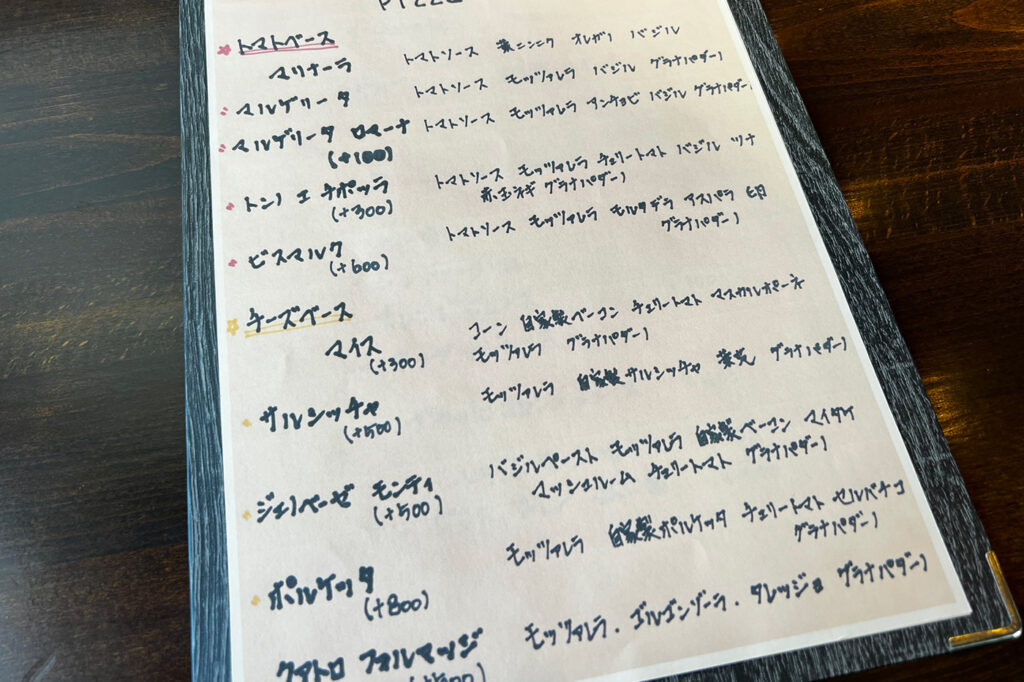 PIZZE
トマトベース
マリナーラ トマトソース ニンニク オレガノ バジル
マルゲリータ トマトソース モッツァレラ バジル グラナパダーノ
マルゲリータ ロマーナ トマトソース モッツァレラ アンチョビ バジル グラナパダーノ
(+100)
トンノ エ チポッラ トマトソース モッツァレラ チェリートマト バジル ツナ
(+300) 赤玉ネギ グラナパダーノ
ビスマルク トマトソース モッツァレラ モルタデラ アスパラ
(+600) グラナパダーノ
チーズベース
マイス コーン 自家製ベーコン チェリートマト マスカルポーネ
(+300) モッツァレラ グラナパダーノ
サルシッチャ モッツァレラ 自家製サルシッチャ グラナパダーノ
(+500)
ジェノベーゼ モンティ バジルペースト モッツァレラ 自家製ベーコン マイタケ
(+500) マッシュルーム チェリートマト グラナパダーノ
ポルケッタ モッツァレラ 自家製ポルケッタ チェリートマト セルバチコ
(+800) グラナパダーノ
クアトロ フォルマッジ モッツァレラ・ゴルゴンゾーラ・タレッジョ グラナパダーノ